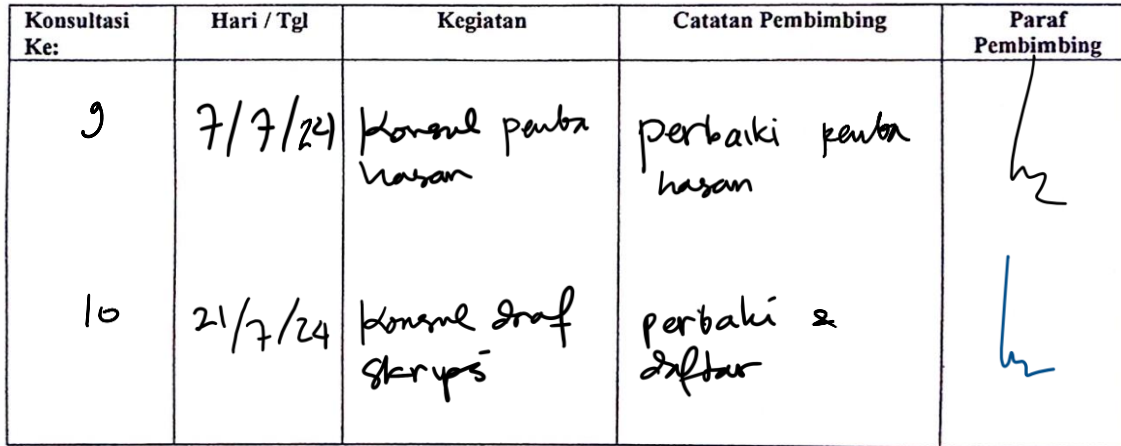 Konsultasi Ke: Hari / Tgl Kegiatan Catatan Pembimbing Paraf Pembimbing
9 7/7/24 Konsul pemba perbaiki pemba
hasan hasan
10 21/7/24 Konsul draf perbaki &
skrips daftar